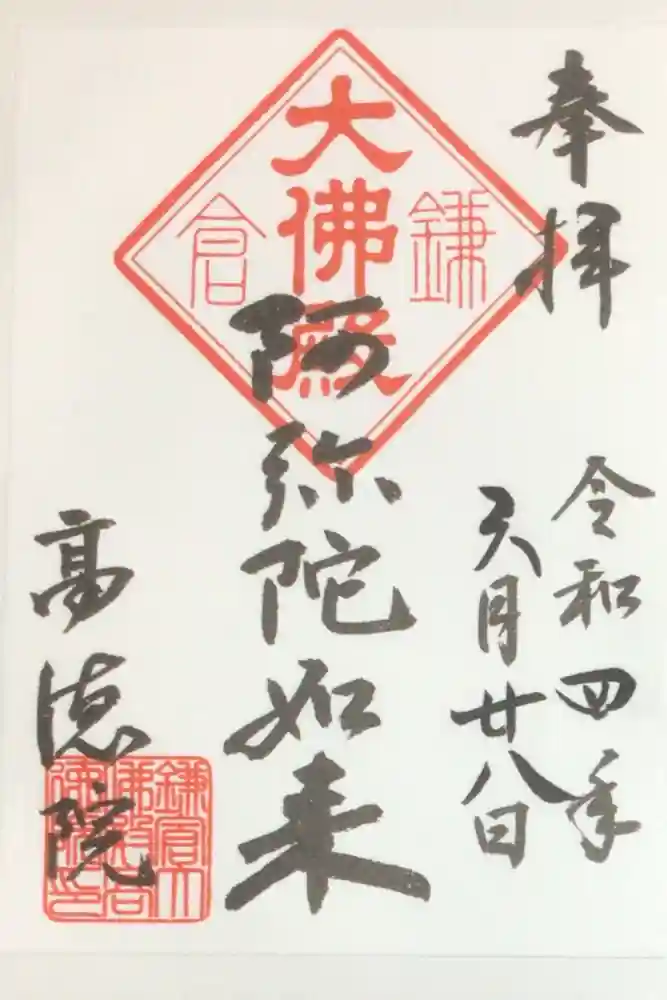 奉拝
令和四年
六月廿八日
鎌倉
大佛殿
阿弥陀如来
高徳院
鎌倉大
佛殿高
德院印